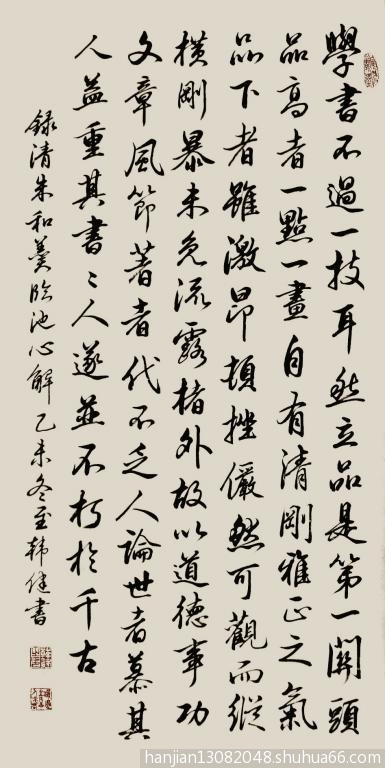 學書不過一技耳然立品是第一關頭
品高者一點一畫自有清剛雅正之氣
品下者雖激昂頓挫儼然可觀而縱
横剛暴未免流露楮外故以道德事功
文章風節著者代不乏人論世者慕其
人益重其書〻人遂並不朽於千古
録清朱和羹臨池心解乙未冬至韩健書
hanjian13082048.shuhua66.com